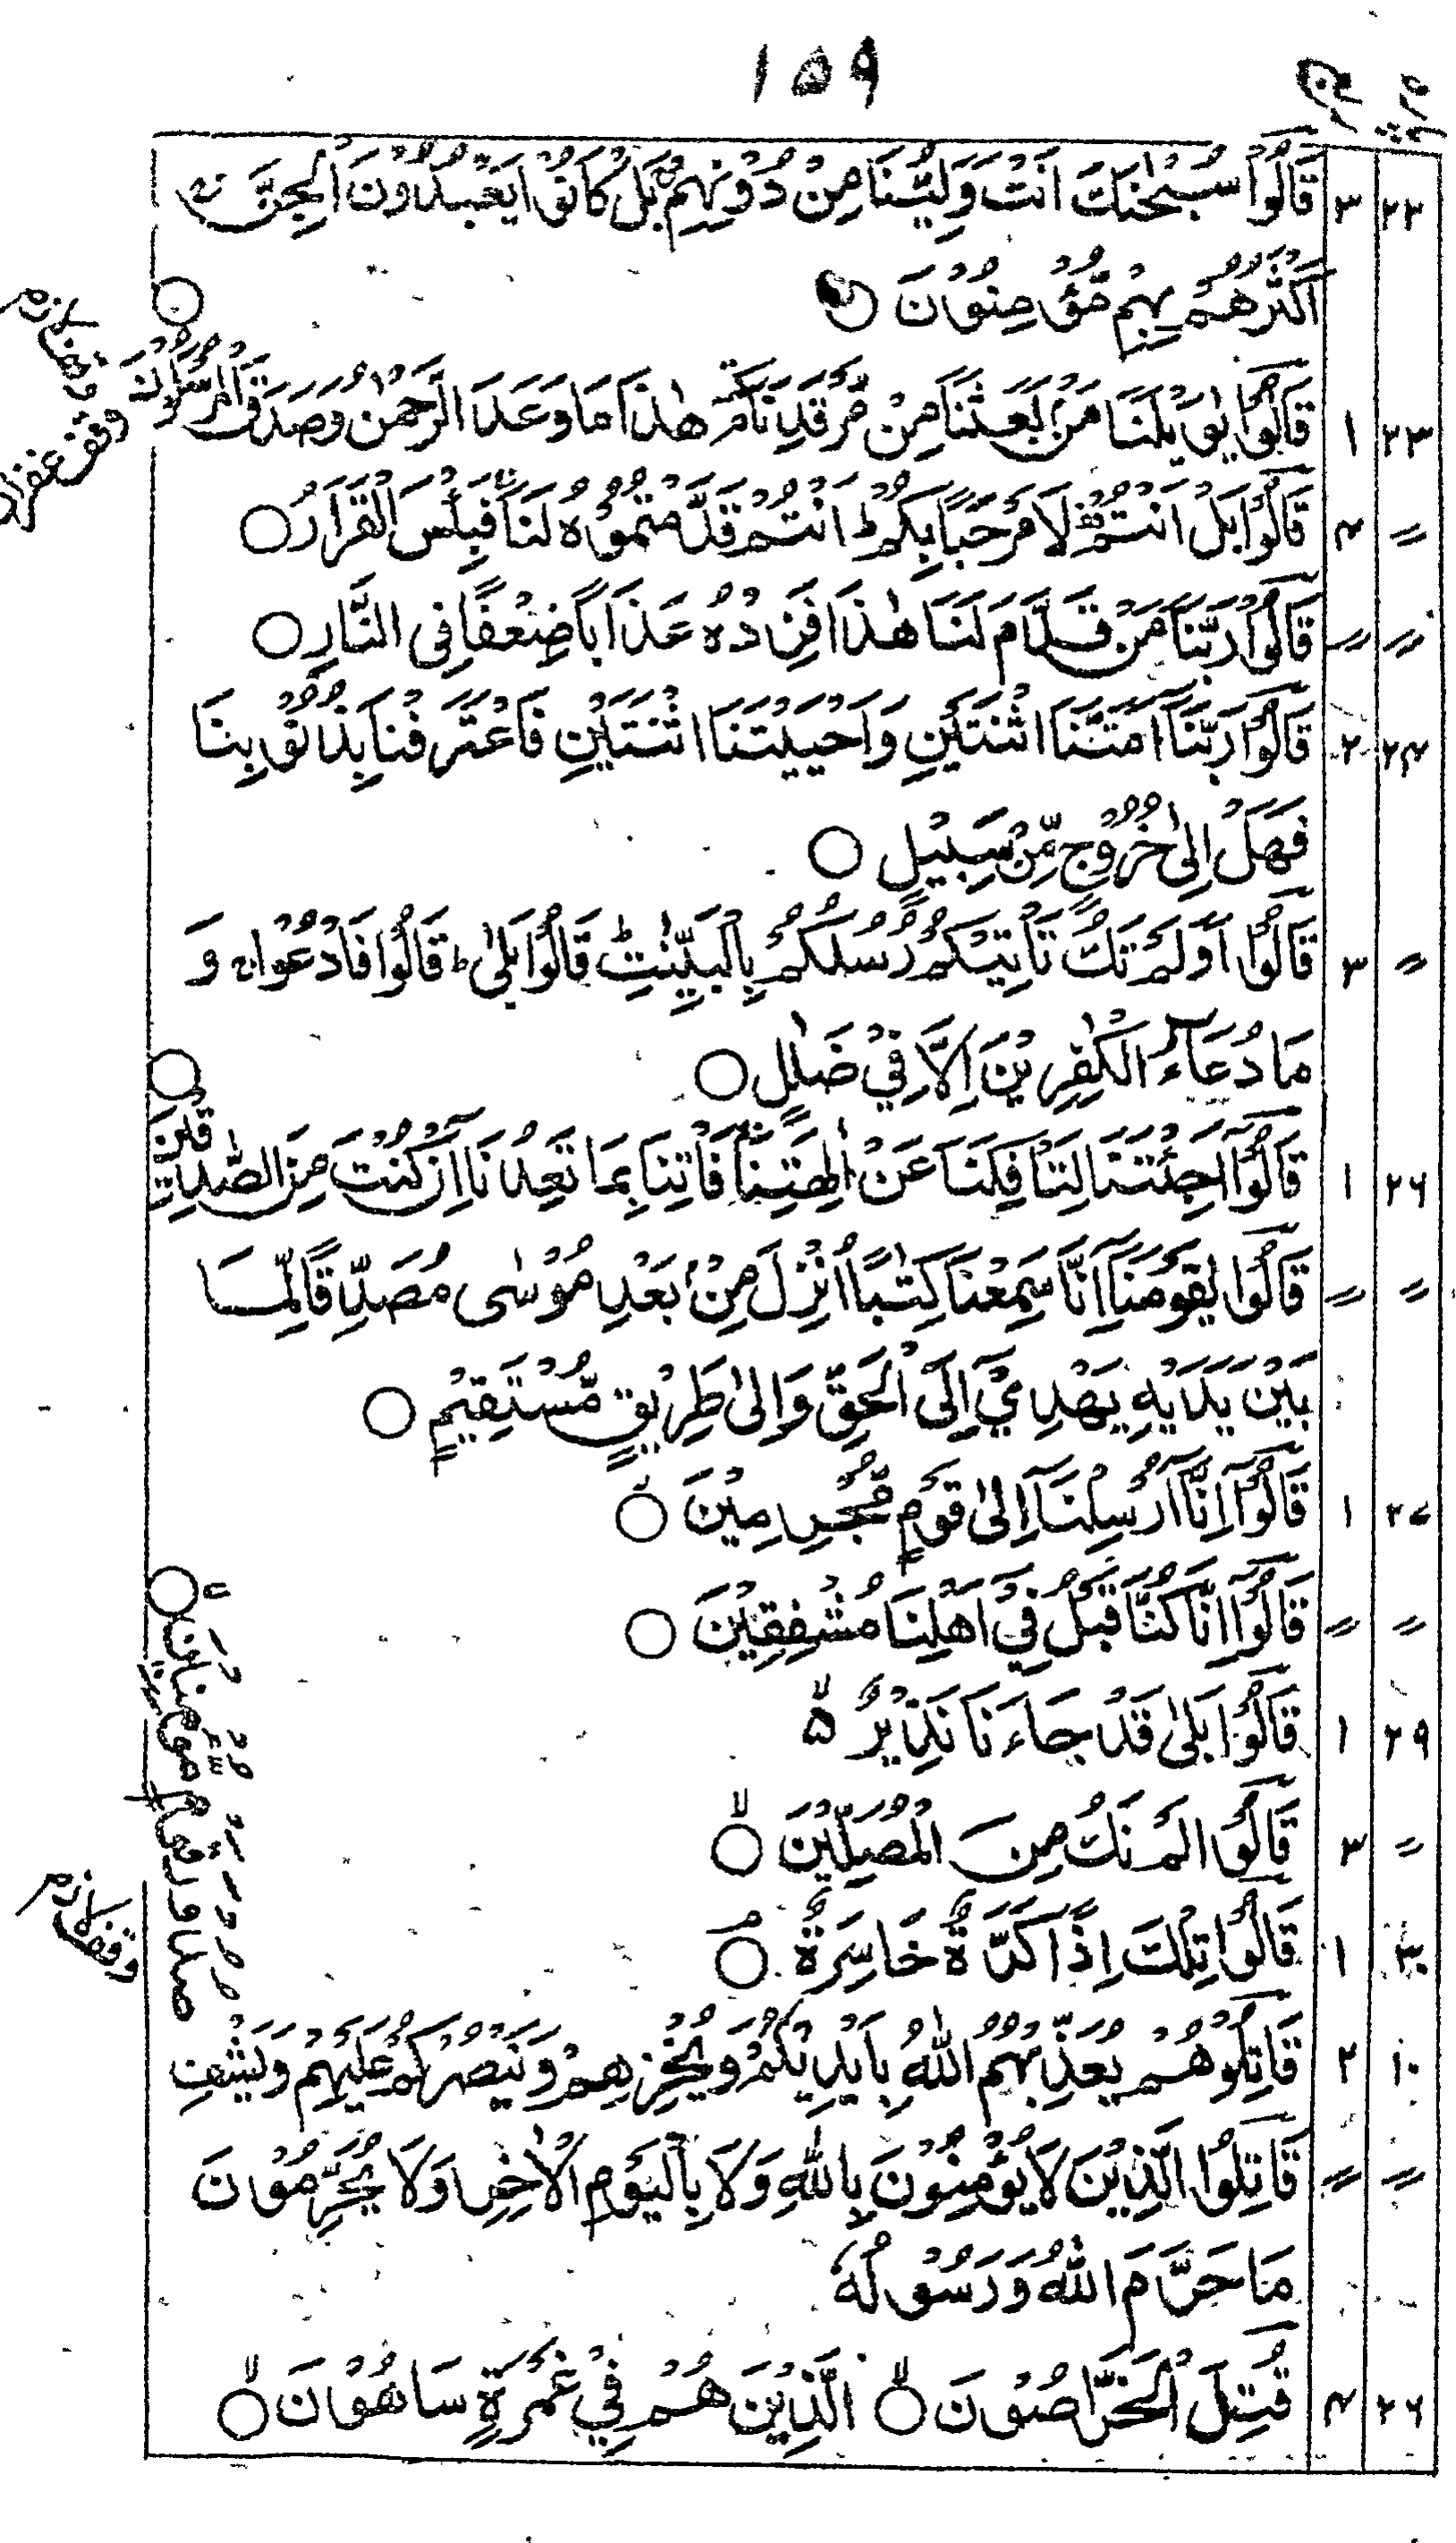 ۱۵۹
پارہ رکوع
۲۲ ۳ قَالُوْا سُبْحٰنَكَ اَنْتَ وَلِيُّنَا مِنْ دُوْنِهِمْ ۚ بَلْ كَانُوْا يَعْبُدُوْنَ الْجِنَّ ۚ
اَكْثَرُهُمْ بِهِمْ مُّؤْمِنُوْنَ ○
۲۳ ۱ قَالُوْا يٰوَيْلَنَا مَنْۢ بَعَثَنَا مِنْ مَّرْقَدِنَا ۘ هٰذَا مَا وَعَدَ الرَّحْمٰنُ وَصَدَقَ الْمُرْسَلُوْنَ ○
وقف لازم
وقف غفران
〃 ۴ قَالُوْا بَلْ اَنْتُمْ ۫ لَا مَرْحَبًۢا بِكُمْ ؕ اَنْتُمْ قَدَّمْتُمُوْهُ لَنَا ۚ فَبِئْسَ الْقَرَارُ ○
〃 〃 قَالُوْا رَبَّنَا مَنْ قَدَّمَ لَنَا هٰذَا فَزِدْهُ عَذَابًا ضِعْفًا فِى النَّارِ ○
۲۴ ۲ قَالُوْا رَبَّنَآ اَمَتَّنَا اثْنَتَيْنِ وَاَحْيَيْتَنَا اثْنَتَيْنِ فَاعْتَرَفْنَا بِذُنُوْبِنَا
فَهَلْ اِلٰى خُرُوْجٍ مِّنْ سَبِيْلٍ ○
〃 ۳ قَالُوْٓا اَوَلَمْ تَكُ تَاْتِيْكُمْ رُسُلُكُمْ بِالْبَيِّنٰتِ ؕ قَالُوْا بَلٰى ؕ قَالُوْا فَادْعُوْا ۚ وَ
مَا دُعَآءُ الْكٰفِرِيْنَ اِلَّا فِيْ ضَلٰلٍ ○
۲۶ ۱ قَالُوْٓا اَجِئْتَنَا لِتَاْفِكَنَا عَنْ اٰلِهَتِنَا ۚ فَاْتِنَا بِمَا تَعِدُنَآ اِنْ كُنْتَ مِنَ الصّٰدِقِيْنَ ○
〃 〃 قَالُوْا يٰقَوْمَنَآ اِنَّا سَمِعْنَا كِتٰبًا اُنْزِلَ مِنْۢ بَعْدِ مُوْسٰى مُصَدِّقًا لِّمَا
بَيْنَ يَدَيْهِ يَهْدِيْٓ اِلَى الْحَقِّ وَاِلٰى طَرِيْقٍ مُّسْتَقِيْمٍ ○
۲۷ ۱ قَالُوْٓا اِنَّآ اُرْسِلْنَآ اِلٰى قَوْمٍ مُّجْرِمِيْنَ ○
〃 〃 قَالُوْٓا اِنَّا كُنَّا قَبْلُ فِيْٓ اَهْلِنَا مُشْفِقِيْنَ ○
۲۹ ۱ قَالُوْا بَلٰى قَدْ جَآءَنَا نَذِيْرٌ ۙ
〃 ۳ قَالُوْا لَمْ نَكُ مِنَ الْمُصَلِّيْنَ ○
۳۰ ۱ قَالُوْا تِلْكَ اِذًا كَرَّةٌ خَاسِرَةٌ ○
وقف لازم
۱۰ ۲ قَاتِلُوْهُمْ يُعَذِّبْهُمُ اللّٰهُ بِاَيْدِيْكُمْ وَيُخْزِهِمْ وَيَنْصُرْكُمْ عَلَيْهِمْ وَيَشْفِ
صُدُوْرَ قَوْمٍ مُّؤْمِنِيْنَ ○
〃 〃 قَاتِلُوا الَّذِيْنَ لَا يُؤْمِنُوْنَ بِاللّٰهِ وَلَا بِالْيَوْمِ الْاٰخِرِ وَلَا يُحَرِّمُوْنَ
مَا حَرَّمَ اللّٰهُ وَرَسُوْلُهٗ
۲۶ ۴ قُتِلَ الْخَرّٰصُوْنَ ○ الَّذِيْنَ هُمْ فِيْ غَمْرَةٍ سَاهُوْنَ ○